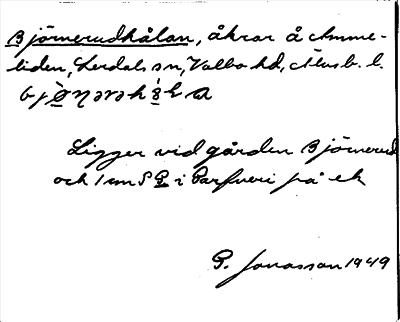 Björnerudhålan, åkrar å Amme-
liden, Lerdals sn, Valbo hd, Älvsb. l.
Ligger vid gården Björnerud
och 1 cm S P i på ek
P. Jonasson 1949